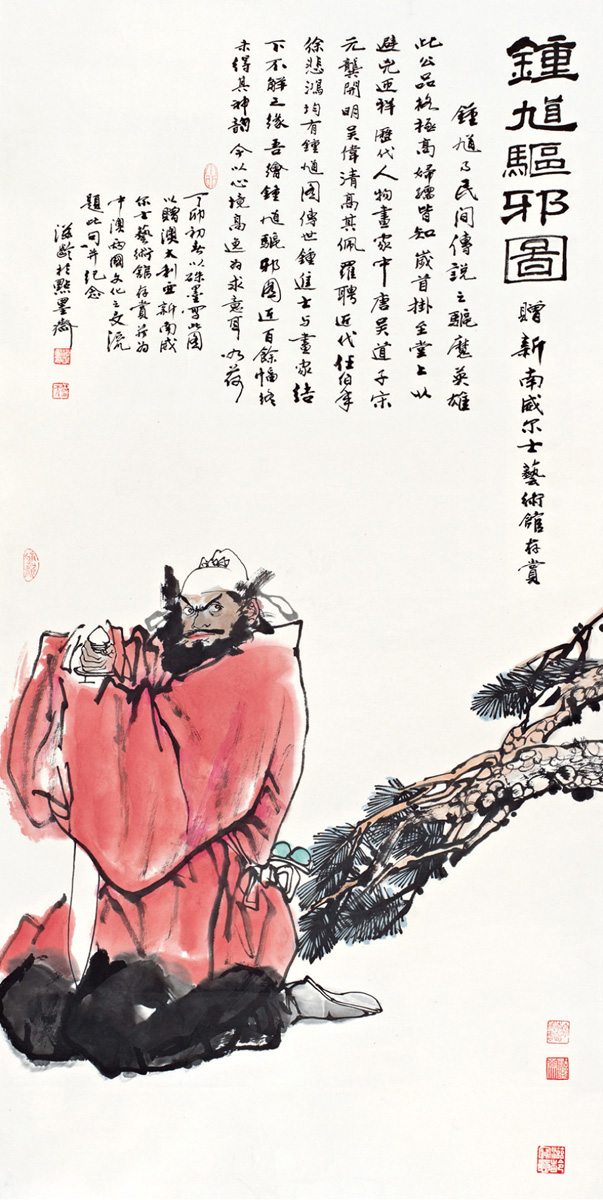 鍾馗驅邪圖
贈新南威尔士藝術館存賞
鍾馗乃民间傳説之驅魔英雄
此公品格極高婦孺皆知歲首掛至堂上以
避兇迎祥歷代人物畫家中唐吴道子宋
元龔開明吴偉清高其佩羅聘近代任伯年
徐悲鴻均有鍾馗图傳世鍾進士与畫家结
下不解之缘吾繪鍾馗驅邪图近百餘幅終
未得其神韻今以心境高逸为求意耳
丁卯初春以硃墨寫此图
以贈澳大利亚新南威
尔士藝術館存賞并为
中澳两國文化之交流
题此句并纪念
海齡於點墨斋